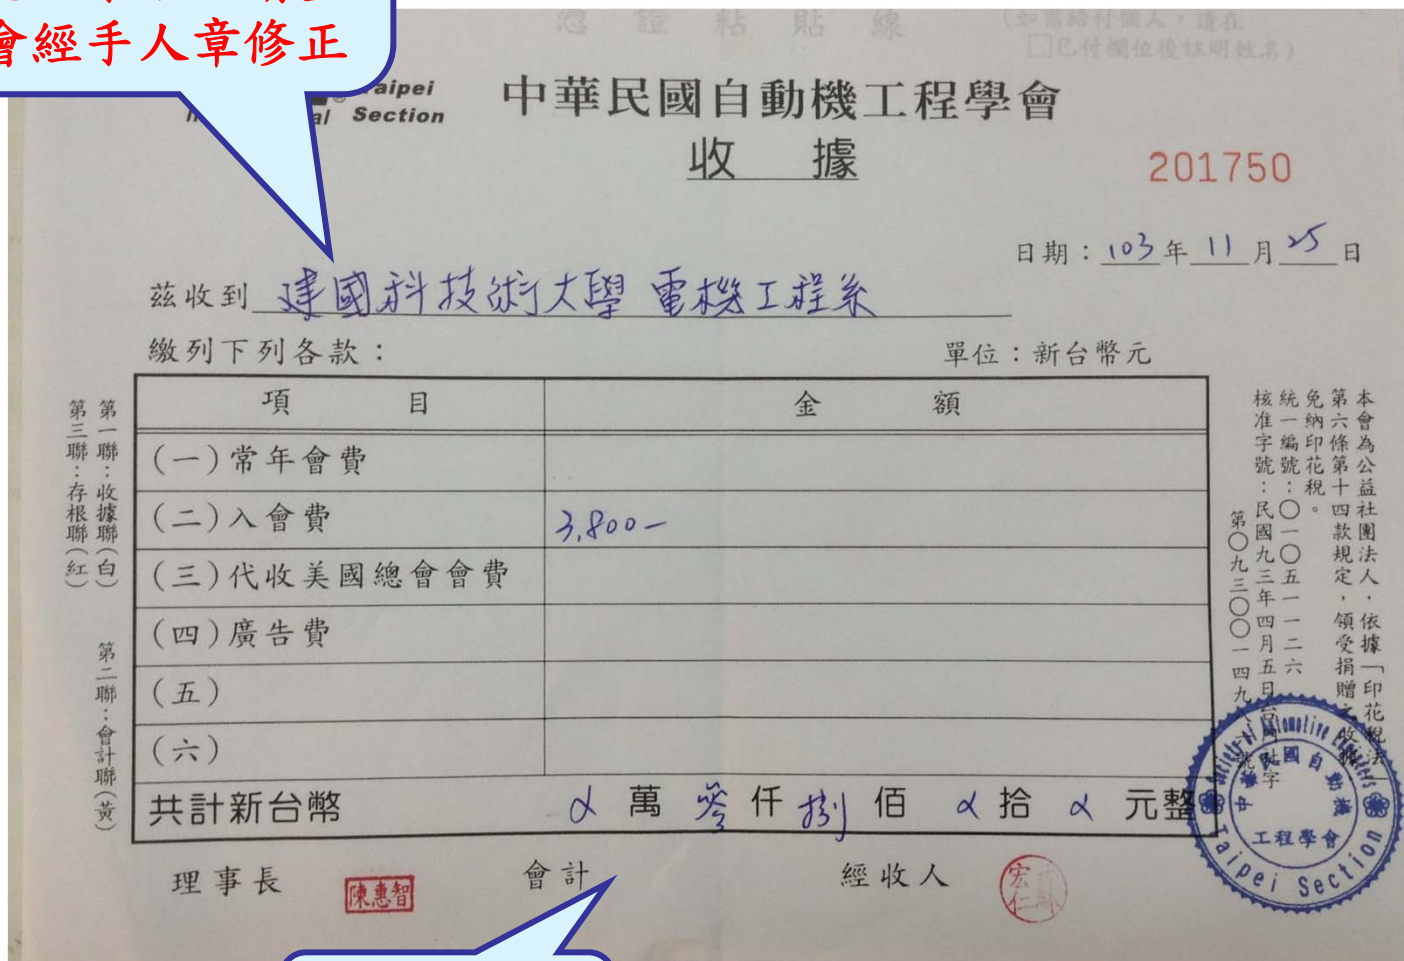 會經手人章修正
憑 證 粘 貼 線
(如需給付個人，請在
□已付欄位後註明姓名)
Taipei
Section
中華民國自動機工程學會
收 據
201750
日期：103年11月25日
茲收到 建國科技術大學 電機工程系
繳列下列各款：
單位：新台幣元
項 目 金 額
(一)常年會費
(二)入會費 3,800-
(三)代收美國總會會費
(四)廣告費
(五)
(六)
共計新台幣 萬 參 仟 捌 佰 拾 元整
理事長 陳惠智 會計 經收人 宏仁
第一聯：收據聯(白) 第二聯：會計聯(黃)
第三聯：存根聯(紅)
本會為公益社團法人，依據「印花稅法」
第六條第十四款規定，領受捐贈之收據
免納印花稅。
統一編號：○一○五一一二六
核准字號：民國九三年四月五日台內社字
第○九三○○一四九 號
Society of Automotive Engineers
中華民國自動機
工程學會
Taipei Section